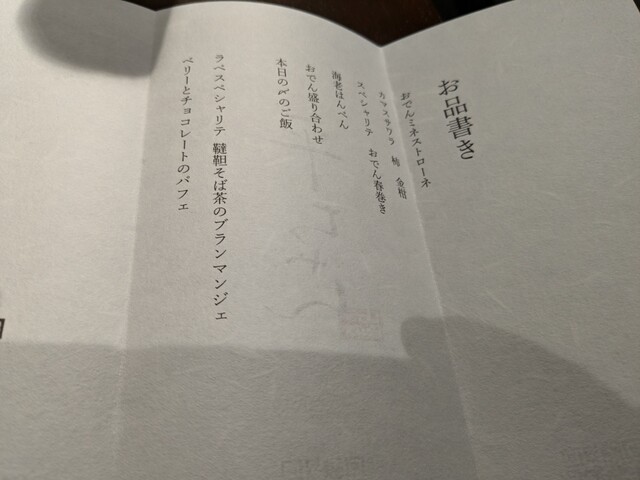 お品書き
おでんミネストローネ
カマスサワラ 柿 金柑
スペシャリテ おでん春巻き
海老はんぺん
おでん盛り合わせ
本日の〆のご飯
ラペスペシャリテ 韃靼そば茶のブランマンジェ
ベリーとチョコレートのパフェ